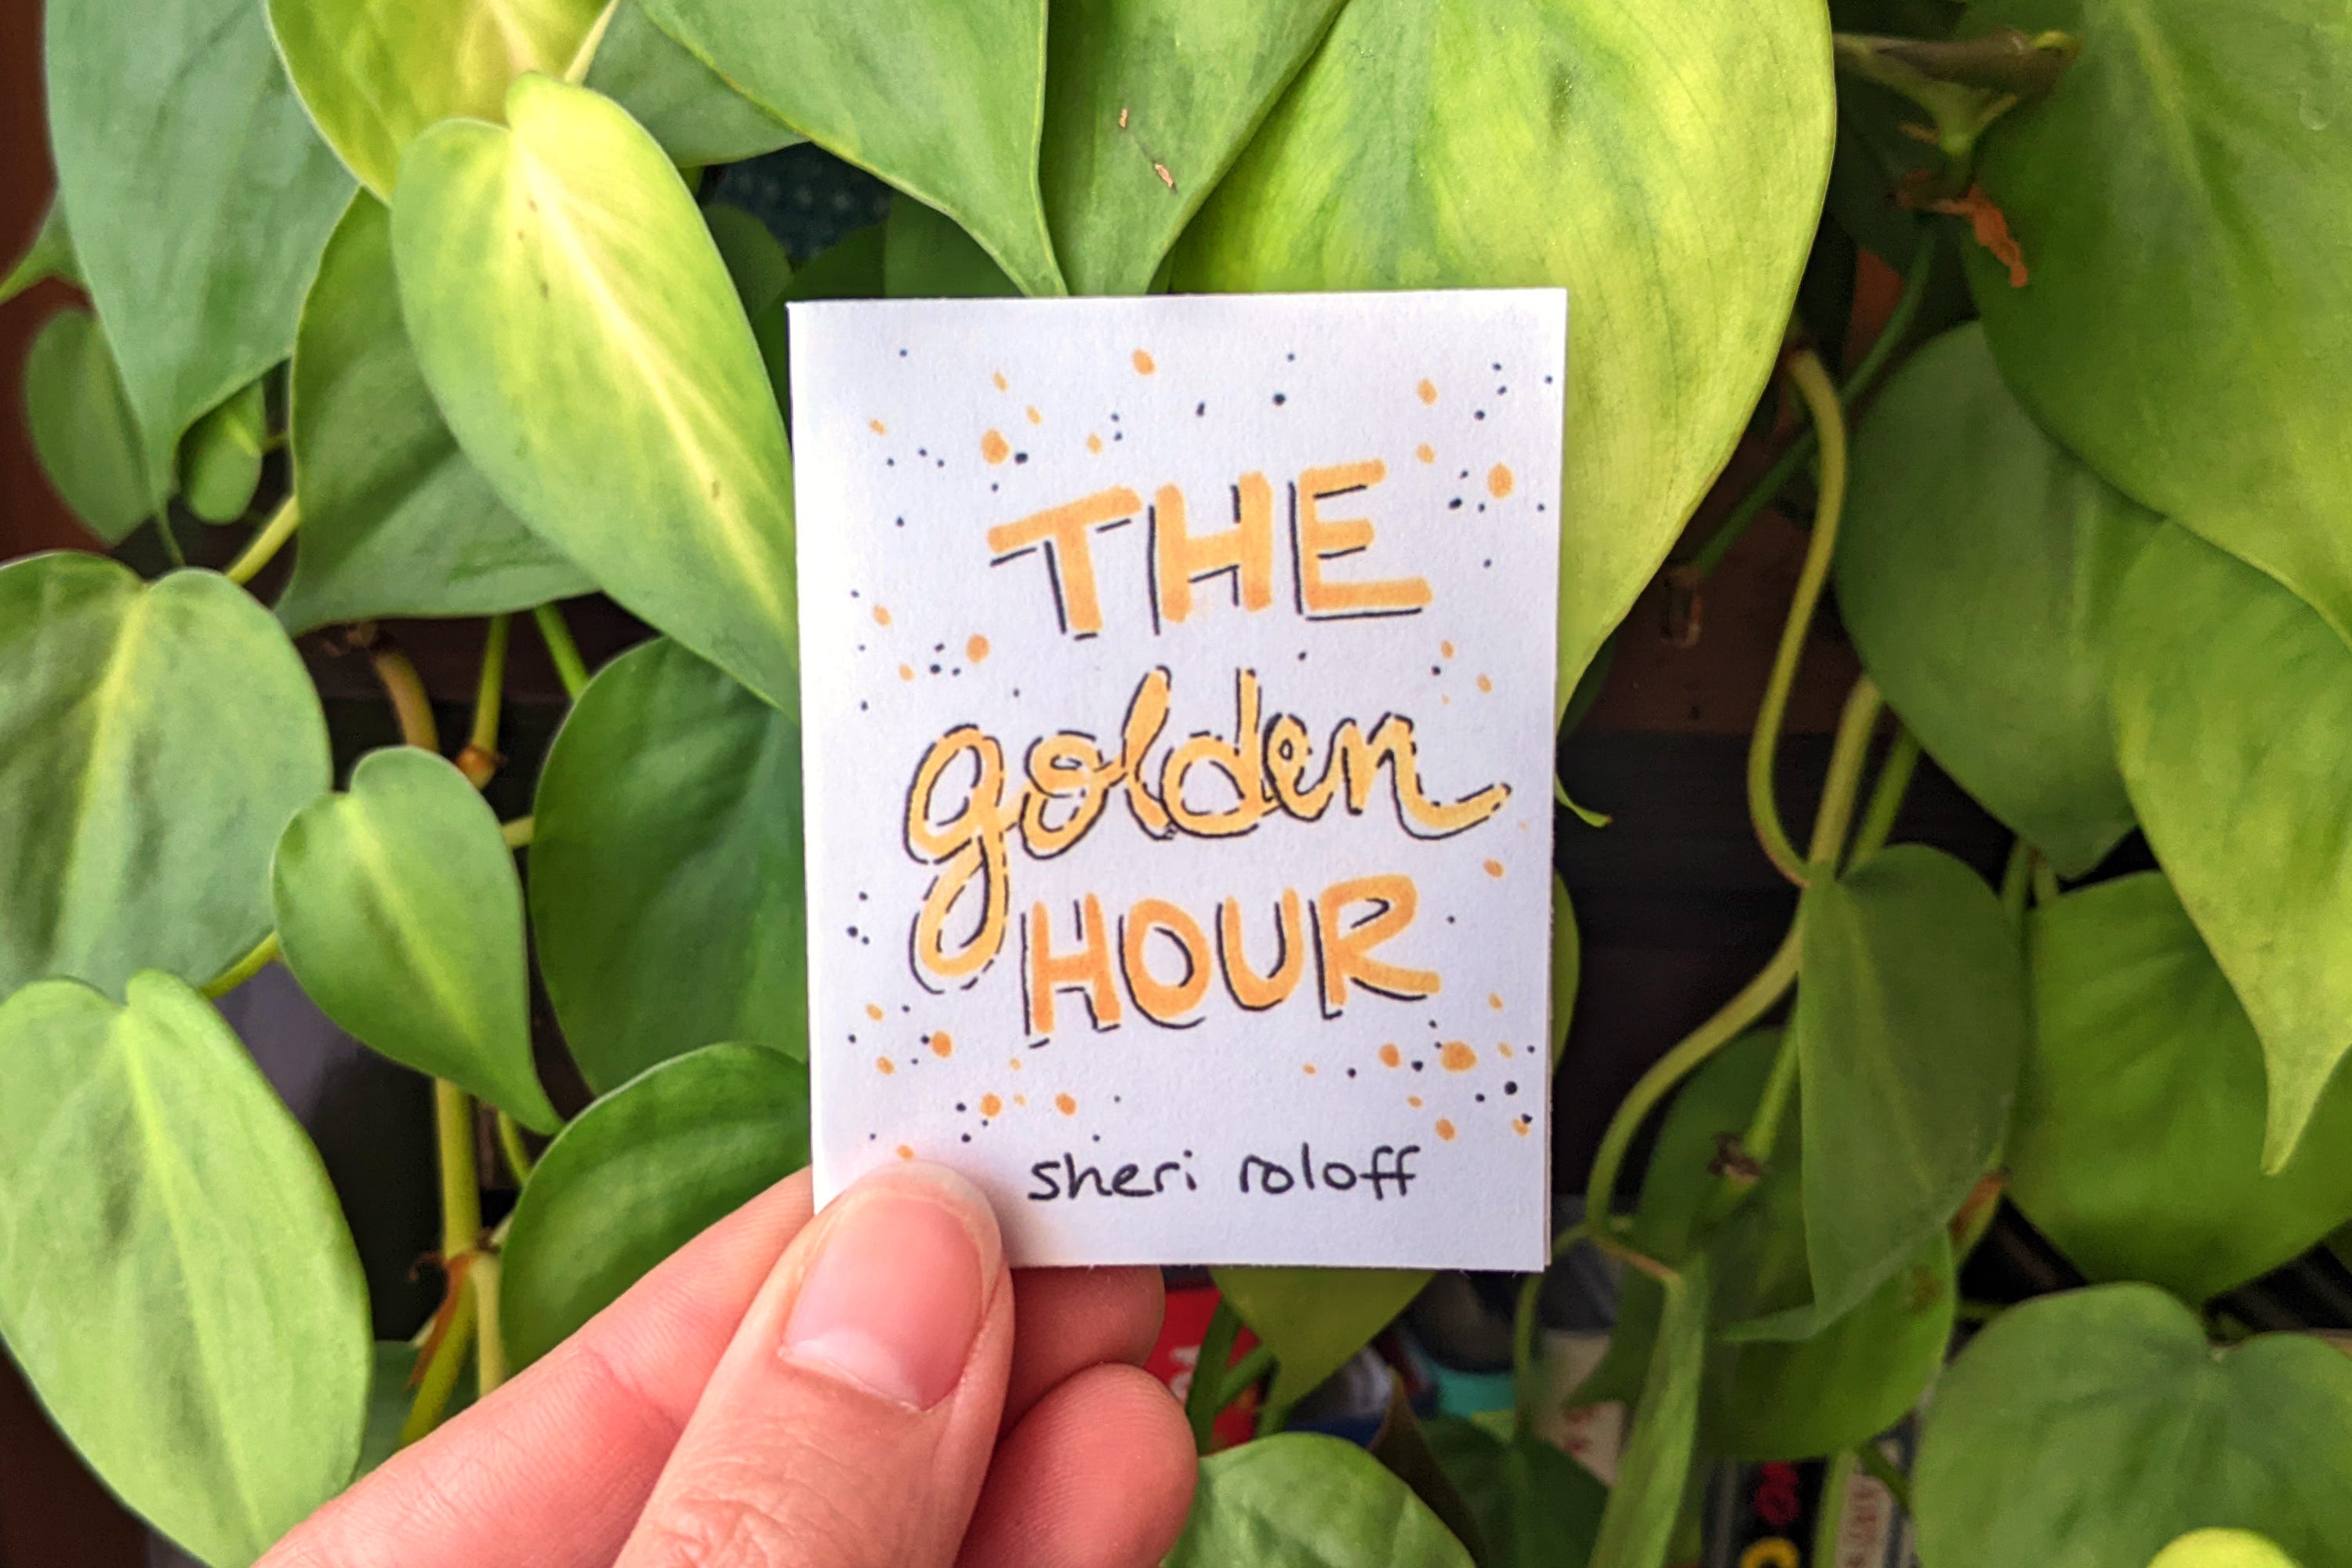 THE
golden
HOUR
sheri roloff